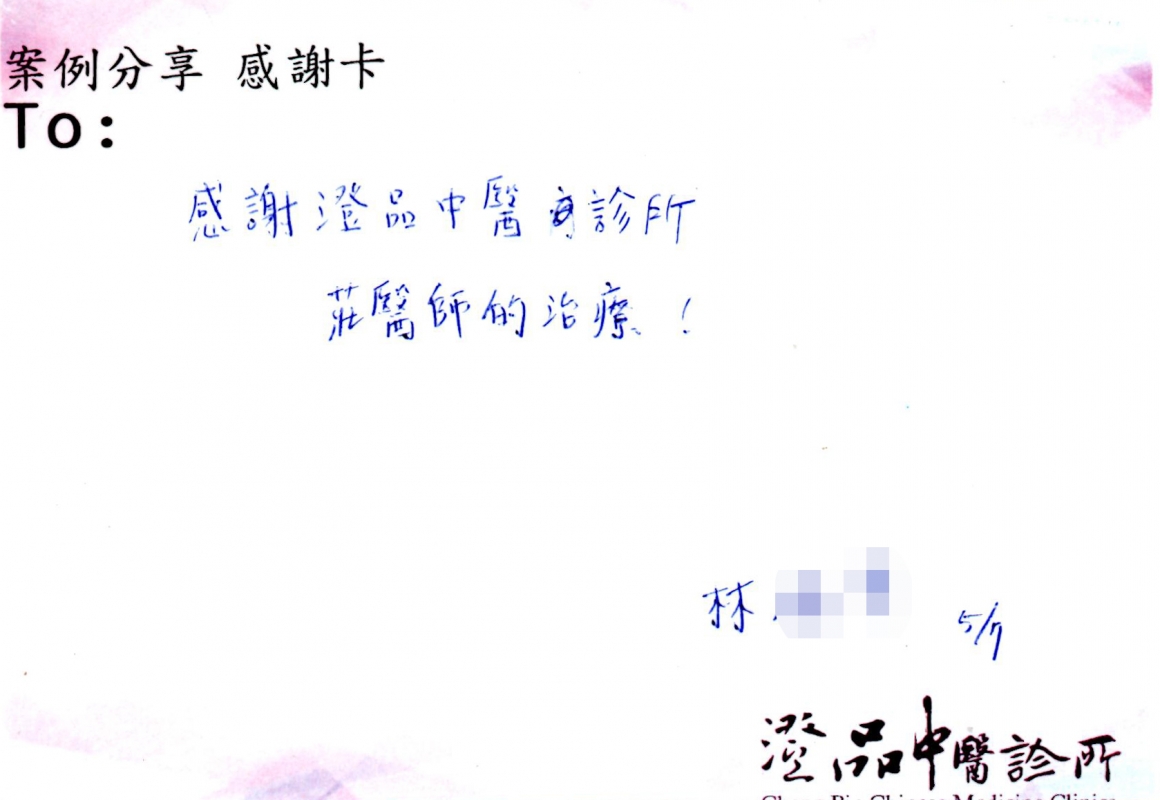 案例分享 感謝卡
To:
感謝澄品中醫診所
莊醫師的治療!
林
5/7
澄品中醫診所
Medicine Clinics